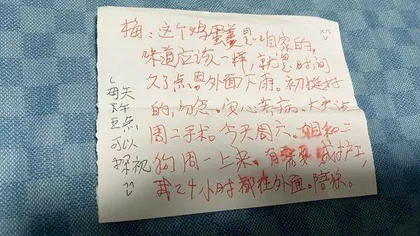 梅：这个鸡蛋羹是咱家的，
味道应该一样，就是时间
久了点因外面下雨。初挺好
的，勿念。安心养病，大夫说
周二手术。今天周六。姐和二
狗周一上来。有需要 或好户工，
我24小时都在外面。陪你。
（每天
下午
五点
可以
探视